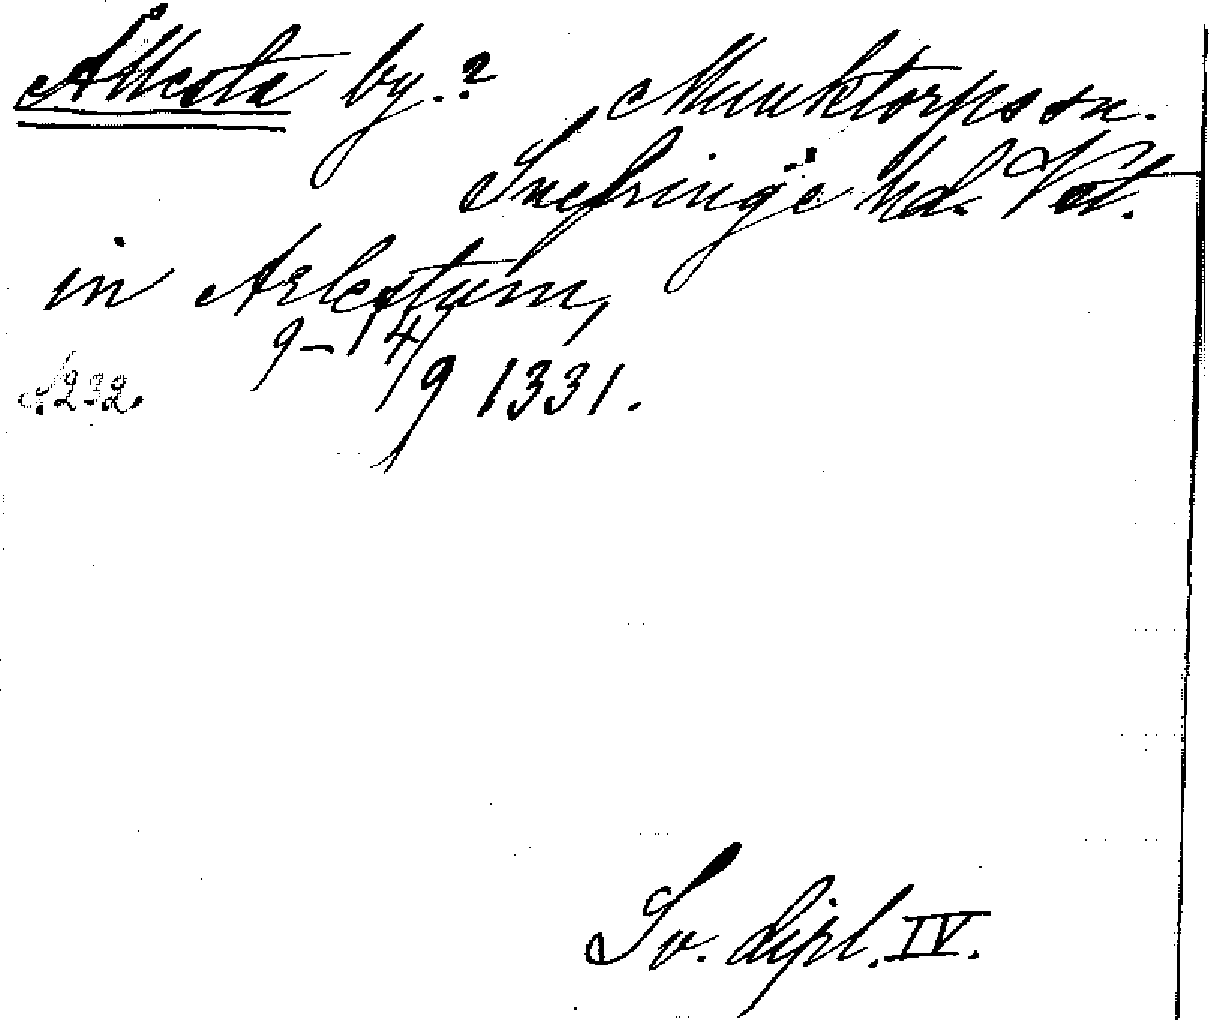 Ållesta by.? Munktorps sn.
Snefringe hd. Vstl.
in Arlestum,
9-14/9 1331.
S. 232.
Sv. dipl. IV.